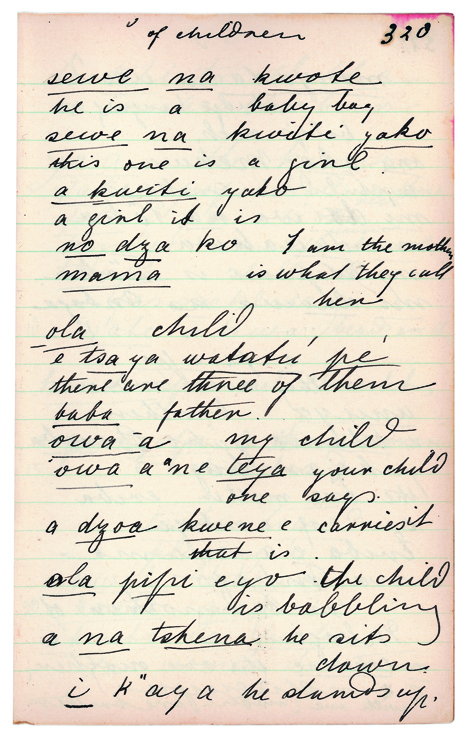 " of children 320
sewe na kwote
he is a baby boy
sewe na kwiti yako
this one is a girl
a kwiti yako
a girl it is
no dza ko I am the mother
mama is what they call
her
ola child
e tsaya watatú pé
there are three of them
baba father
owa-a my child
owa a"ne teya your child
one says
a dzoa kwene e carries it
that is.
ola pipi eyo the child
is babbling
a na tshena he sits
down.
i k"aya he stands up.